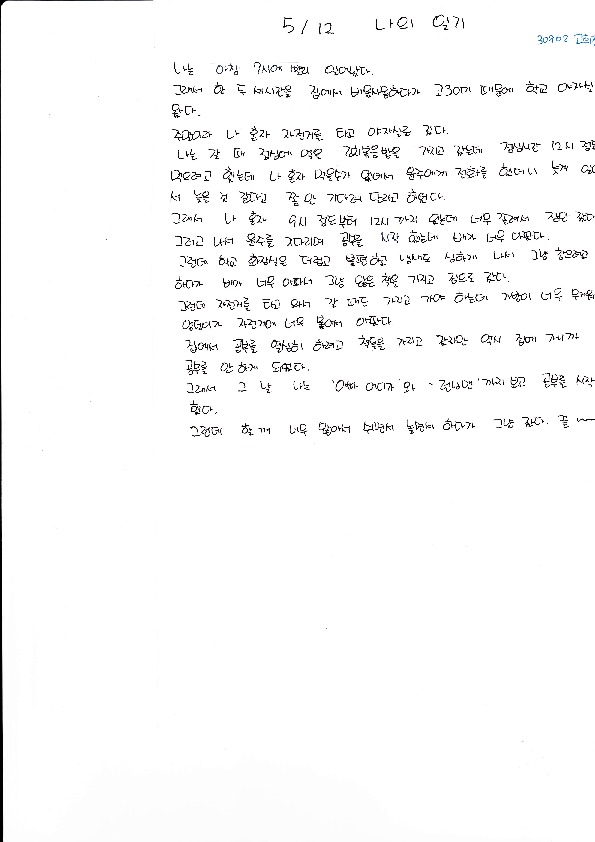 5/12 나의 일기
30902
나는 아침 7시에 일어났다.
그래서 한 두 세시간을 집에서 하다가 고3이기 때문에 학교 야자실
왔다.
나 혼자 자전거를 타고 야자실로 갔다.
나는 갈 때 점심에 먹은 김치볶음밥은 가지고 갔는데 점심시간 12시 정도
먹으려고 했는데 나 혼자 먹을수가 없어서 윤주에게 전화를 했더니 늦게 일어
서 늦을 것 같다고 좀 만 기다려 달라고 하였다.
그래서 나 혼자 9시 정도부터 12시까지 있는데 너무 졸려서 잠만 잤다
그리고 나서 윤주를 기다리며 공부를 시작 했는데 배가 너무 아팠다.
그런데 학교 화장실은 더럽고 불편하고 냄새도 심하게 나서 그냥 참으려고
하다가 배가 너무 아파서 그냥 많은 책을 가지고 집으로 갔다.
그런데 자전거를 타고 와서 갈 때도 가지고 가야 하는데 가방이 너무 무거워
엉덩이가 자전거에 너무 아팠다
집에서 공부를 열심히 하려고 책들을 가지고 갔지만 역시 집에 가니까
공부를 안 하게 되었다.
그래서 그 날 나는 '아빠 어디가'와 까지 보고 공부를 시작
했다.
그런데 할 께 너무 많아서 하다가 그냥 잤다. 끝~